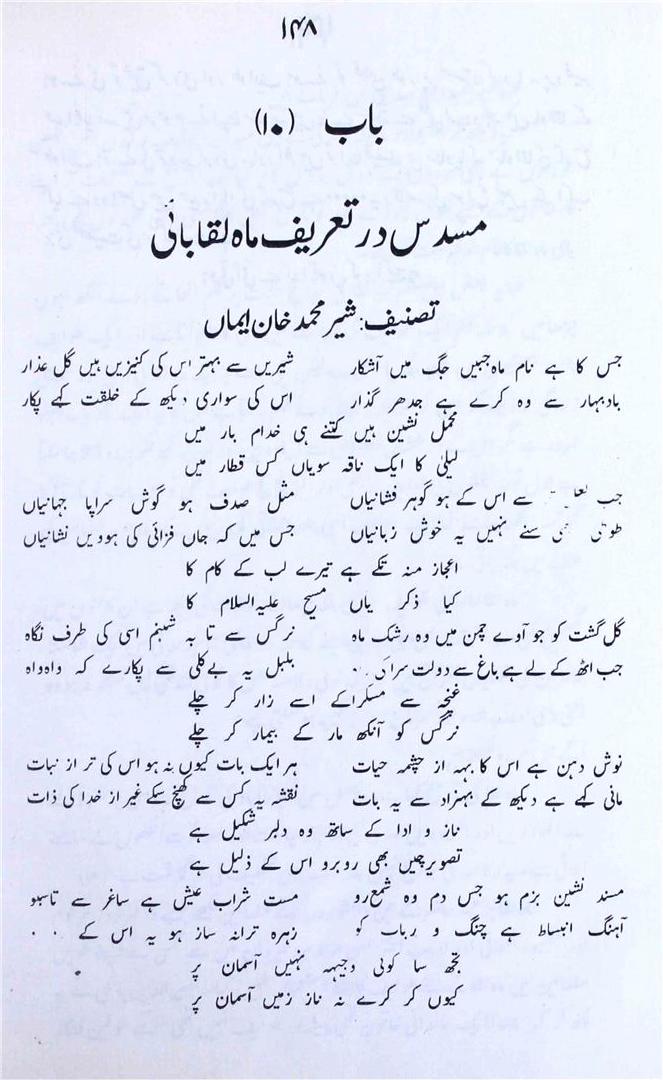 ۱۴۸
باب (۱۰)
مسدس در تعریف ماہ لقا بائی
تصنیف: شیر محمد خان ایماں
جس کا ہے نام ماہ جبیں جگ میں آشکار شیریں سے بہتر اس کی کنیزیں ہیں گل عذار
باد بہار سے وہ کرے ہے جدھر گذار اس کی سواری دیکھ کے خلقت کہے پکار
محمل نشین ہیں کتنے ہی خدام بار میں
لیلیٰ کا ایک ناقہ سویاں کس قطار میں
جب سے اس کے ہو گوہر فشانیاں مثل صدف ہو گوش سراپا جہانیاں
طوطی سنے نہیں یہ خوش زبانیاں جس میں کہ جاں فزائی کی ہوویں نشانیاں
اعجاز منہ تکے ہے تیرے لب کے کام کا
کیا ذکر یاں مسیح علیہ السلام کا
گل گشت کو جو آوے چمن میں وہ رشک ماہ نرگس سے تا بہ شبنم اسی کی طرف نگاہ
جب اٹھ کے لے ہے باغ سے دولت سرا کی بلبل یہ بے کلی سے پکارے کہ واہ واہ
غنچہ سے مسکرا کے اسے زار کر چلے
نرگس کو آنکھ مار کے بیمار کر چلے
نوش دہن ہے اس کا بہہ از چشمہ حیات ہر ایک بات کیوں نہ ہو اس کی تر از نبات
مانی کہے ہے دیکھ کے بہزاد سے یہ بات نقشہ یہ کس سے کھنچ سکے غیر از خدا کی ذات
ناز و ادا کے ساتھ وہ دلبر شکیل ہے
تصویر چیں بھی روبرو اس کے ذلیل ہے
مسند نشین بزم ہو جس دم وہ شمع رو مست شراب عیش ہے ساغر سے تا سبو
آہنگ انبساط ہے چنگ و رباب کو زہرہ ترانہ ساز ہو یہ اس کے
تجھ سا کوئی وجیہہ نہیں آسمان پر
کیوں کر کرے نہ ناز زمیں آسمان پر